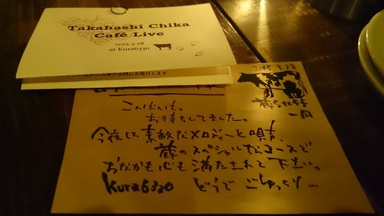 Takahashi Chika
Café Live
2015.3.28
at Kura6330
2015.3.28
こんばんは。
お待ちしてました。
今夜は素敵なメロディーと唄声
蔵のスペシャルなコースで
おなかも心も満たされて下さい。
Kura6330 どうぞごゆっくり…